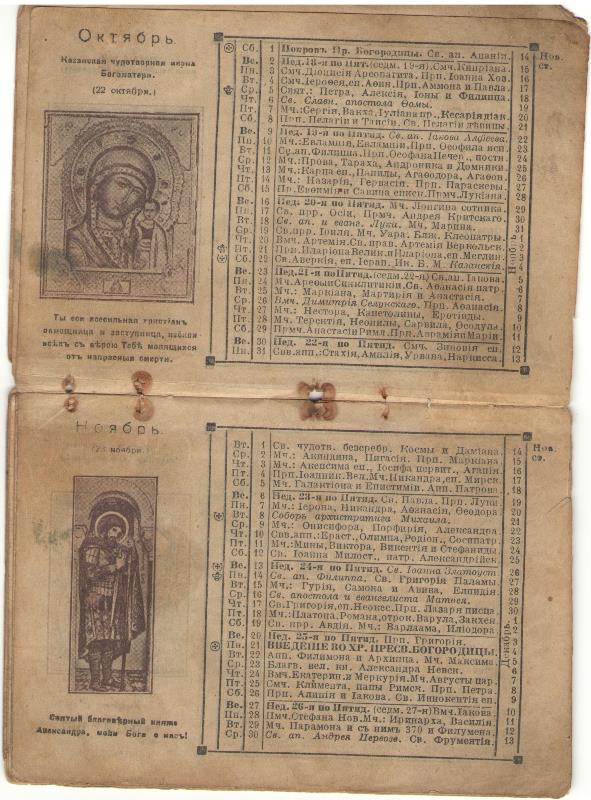 Октябрь.
Казанская чудотворная икона
Богоматери.
(22 октября.)
Ты еси всесильная христіанъ
защитница и заступница, избави
всѣхъ съ вѣрою Тебѣ молящихся
отъ напрасныя смерти.
Нов. ст.
Сб. 1 Покровъ Пр. Богородицы. Св. ап. Ананіи. 14
Вс. 2 Нед. 18-я по Пят. (седм. 19-я). Смч. Кипріана. 15
Пн. 3 Смч. Діонисія Ареопагита. Прп. Іоанна Хоз. 16
Вт. 4 Смч. Іероѳея, еп. Аѳин. Прп. Аммона и Павла. 17
Ср. 5 Свят.: Петра, Алексія, Іоны и Филиппа. 18
Чт. 6 Св. Славн. апостола Ѳомы. 19
Пт. 7 Мч.: Сергія, Вакха, Іуліана пр., Кесарія діак. 20
Сб. 8 Прп. Пелагіи и Таисіи. Св. Пелагіи дѣвицы. 21
Вс. 9 Нед. 19-я по Пятид. Св. ап. Іакова Алфеева. 22
Пн. 10 Мч.: Евлампія, Евлампіи, Прп. Ѳеофила исп. 23
Вт. 11 Св. ап. Филиппа. Прп. Ѳеофана Печер., постн. 24
Ср. 12 Мч.: Прова, Тараха, Андроника и Домники. 25
Чт. 13 Мч.: Карпа еп., Папилы, Агаѳодора, Агаѳон. 26
Пт. 14 Мч.: Назарія, Гервасія. Прп. Параскевы. 27
Сб. 15 Пр. Евѳимія и Савина еписк. Прмч. Лукіана. 28
Вс. 16 Нед. 20-я по Пятид. Мч. Лонгина сотника. 29
Пн. 17 Св. прр. Осіи, Прмч. Андрея Критскаго. 30
Вт. 18 Св. ап. и еванг. Луки. Мч. Марина. 31
Ср. 19 Св. прр. Іоиля. Мч. Уара. Блж. Клеопатры. 1
Чт. 20 Вмч. Артемія. Св. прав. Артемія Веркольск. 2
Пт. 21 Прп. Иларіона Велик. и Иларіона, еп. Меглин. 3
Сб. 22 Св. Аверкія, еп. Іерап. Ик. Б. М. Казанскія. 4
Вс. 23 Нед. 21-я по Пятид. (седм. 22-я) Св. ап. Іакова. 5
Пн. 24 Мч. Ареѳы и Синклитикіи. Св. Аѳанасія патр. 6
Вт. 25 Мч.: Маркіана, Мартирія и Анастасія. 7
Ср. 26 Вмч. Димитрія Селунскаго. Прп. Аѳанасія. 8
Чт. 27 Мч.: Нестора, Капетолины, Еротіиды. 9
Пт. 28 Мч. Терентія, Неонилы, Сарвила, Ѳеодула. 10
Сб. 29 Прмч. Анастасіи Римл. Прп. Авраамія Маріи. 11
Вс. 30 Нед. 22-я по Пятид. Смч. Зиновія еп. 12
Пн. 31 Свв. апп.: Стахія, Амплія, Урвана, Наркисса. 13
Ноябрь
Ноябрь.
(23 ноября.)
Святый благовѣрный княже
Александре, моли Бога о насъ!
Нов. ст.
Вт. 1 Св. чудотв. безсребр. Космы и Даміана. 14
Ср. 2 Мч.: Акиндина, Пигасія. Прп. Маркіана 15
Чт. 3 Мч.: Акепсима еп., Іосифа первит., Агапія. 16
Пт. 4 Прп. Іоанник. Вел. Мч. Никандра, еп. Мирск. 17
Сб. 5 Мч. Галактіона и Епистиміи. Апп. Патрова. 18
Вс. 6 Нед. 23-я по Пятид. Св. Павла. Прп. Луки 19
Пн. 7 Мч.: Іерона, Никандра, Аѳанасія, Ѳеодора 20
Вт. 8 Соборъ архистратига Михаила. 21
Ср. 9 Мч.: Онисифора, Порфирія, Александра 22
Чт. 10 Свв. апп.: Ераст., Олимпа, Родіон., Сосипатр. 23
Пт. 11 Мч.: Мины, Виктора, Викентія и Стефаниды. 24
Сб. 12 Св. Іоанна Милост., патр. Александрійск. 25
Вс. 13 Нед. 24-я по Пятид. Св. Іоанна Златоуст 26
Пн. 14 Св. ап. Филиппа. Св. Григорія Паламы. 27
Вт. 15 Мч.: Гурія, Самона и Авива, Елпидія. 28
Ср. 16 Св. апостола и евангелиста Матѳея. 29
Чт. 17 Св. Григорія, еп. Неокес. Прп. Лазаря писца 30
Пт. 18 Мч.: Платона, Романа, отрок. Варула, Закхея. 1
Сб. 19 Св. прр. Авдія. Мч.: Варлаама, Иліодора. 2
Вс. 20 Нед. 25-я по Пятид. Прп. Григорія. 3
Пн. 21 ВВЕДЕНІЕ ВО ХР. ПРЕСВ. БОГОРОДИЦЫ. 4
Вт. 22 Апп. Филимона и Архиппа. Мч. Максима 5
Ср. 23 Благв. вел. кн. Александра Невск. 6
Чт. 24 Вмч. Екатерин. и Меркурія. Мч. Августы цар. 7
Пт. 25 Смч. Климента, папы Римск. Прп. Петра. 8
Сб. 26 Прп. Алипія и Іакова. Св. Иннокентія еп. 9
Вс. 27 Нед. 26-я по Пятид. (седм. 27-я) Вмч. Іакова 10
Пн. 28 Пмч. Стефана Нов. Мч.: Иринарха, Василія. 11
Вт. 29 Мч. Парамона и съ нимъ 370 и Филумена. 12
Ср. 30 Св. ап. Андрея Первозв. Св. Фрументія. 13
Декабрь